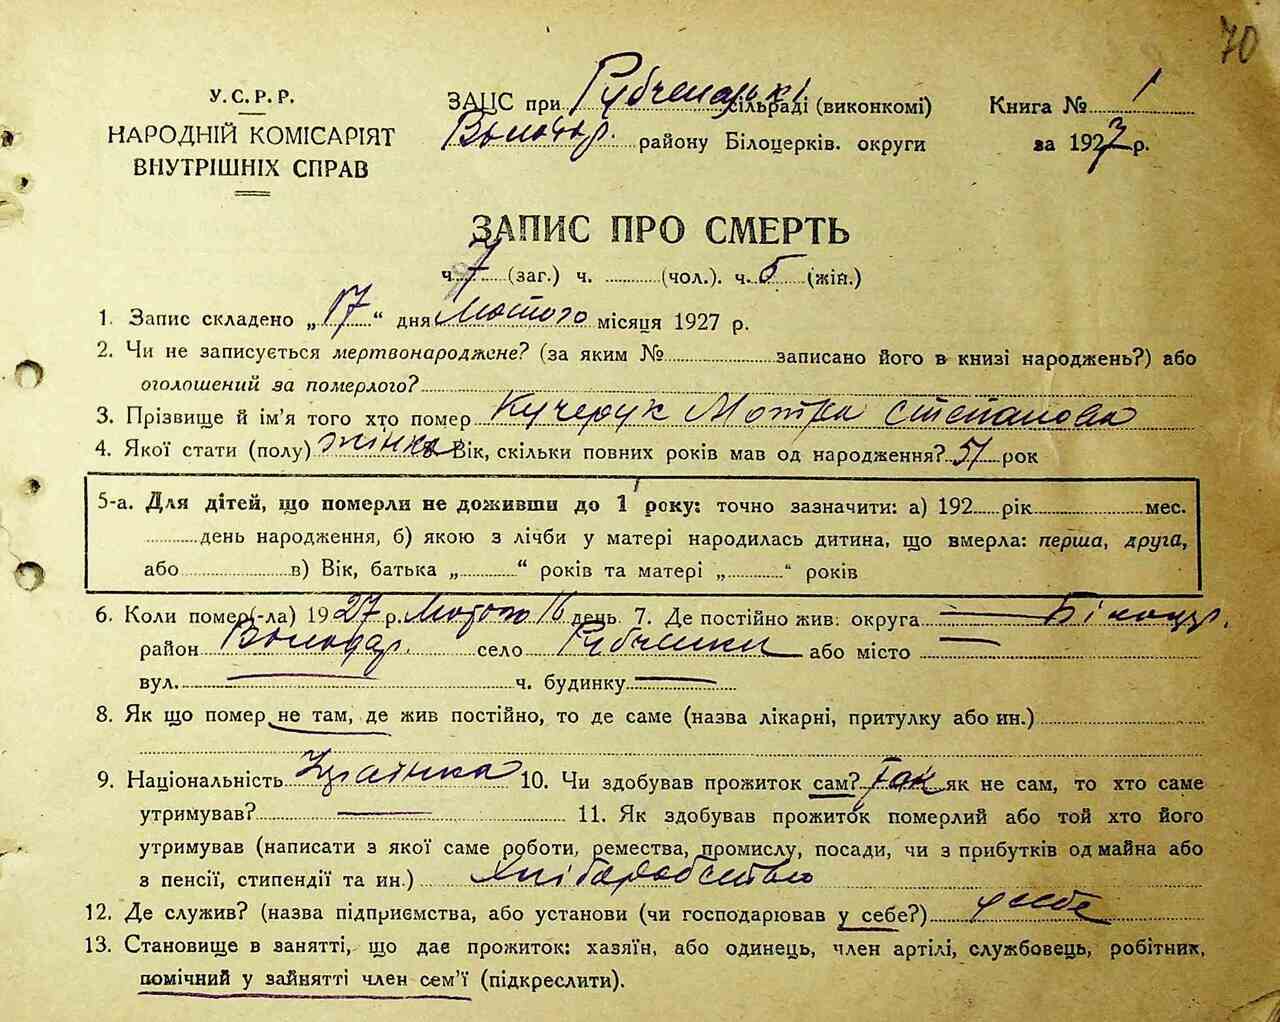 70
У.С.Р.Р.
НАРОДНІЙ КОМІСАРІЯТ
ВНУТРІШНІХ СПРАВ
ЗАЦС при Рубченській сільраді (виконкомі)
Володар. району Білоцерків. округи
Книга № 1
за 1927 р.
ЗАПИС ПРО СМЕРТЬ
ч. 7 (заг.) ч. (чол.). ч. 5 (жін.)
1. Запис складено „17“ дня Лютого місяця 1927 р.
2. Чи не записується мертвонароджене? (за яким № записано його в книзі народжень?) або
оголошений за померлого?
3. Прізвище й ім'я того хто помер Кучерук Мотря Степанова
4. Якої стати (полу) жінка Вік, скільки повних років мав од народження? 51 рок
5-а. Для дітей, що померли не доживши до 1 року: точно зазначити: а) 192 рік мес.
день народження, б) якою з лічби у матері народилась дитина, що вмерла: перша, друга,
або в) Вік, батька „ “ років та матері „ “ років
6. Коли помер(-ла) 1927 р. Лютого 16 день 7. Де постійно жив: округа Білоцер.
район Володар. село Рубченки або місто
вул. ч. будинку
8. Як що помер не там, де жив постійно, то де саме (назва лікарні, притулку або ин.)
9. Національність Українка 10. Чи здобував прожиток сам? Так як не сам, то хто саме
утримував? 11. Як здобував прожиток померлий або той хто його
утримував (написати з якої саме роботи, ремества, промислу, посади, чи з прибутків од майна або
з пенсії, стипендії та ин.) Хліборобство
12. Де служив? (назва підприємства, або установи (чи господарював у себе?) у себе
13. Становище в занятті, що дає прожиток: хазяїн, або одинець, член артілі, службовець, робітник,
помічний у зайнятті член сем'ї (підкреслити).